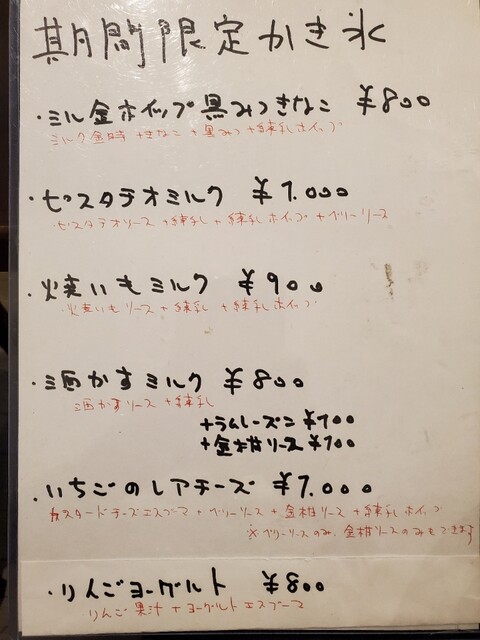 期間限定かき氷
・ミル金ホイップ黒みつきなこ ¥800
ミルク金時+きなこ+黒みつ+練乳ホイップ
・ピスタチオミルク ¥1.000
ピスタチオソース+練乳+練乳ホイップ+ベリーソース
・焼いもミルク ¥900
焼いもソース+練乳+練乳ホイップ
・酒かすミルク ¥800
酒かすソース+練乳
+ラムレーズン ¥100
+金柑ソース ¥100
・いちごのレアチーズ ¥1.000
カスタードチーズエスプーマ+ベリーソース+金柑ソース+練乳ホイップ
※ベリーソースのみ、金柑ソースのみもできます
・りんごヨーグルト ¥800
りんご果汁+ヨーグルトエスプーマ